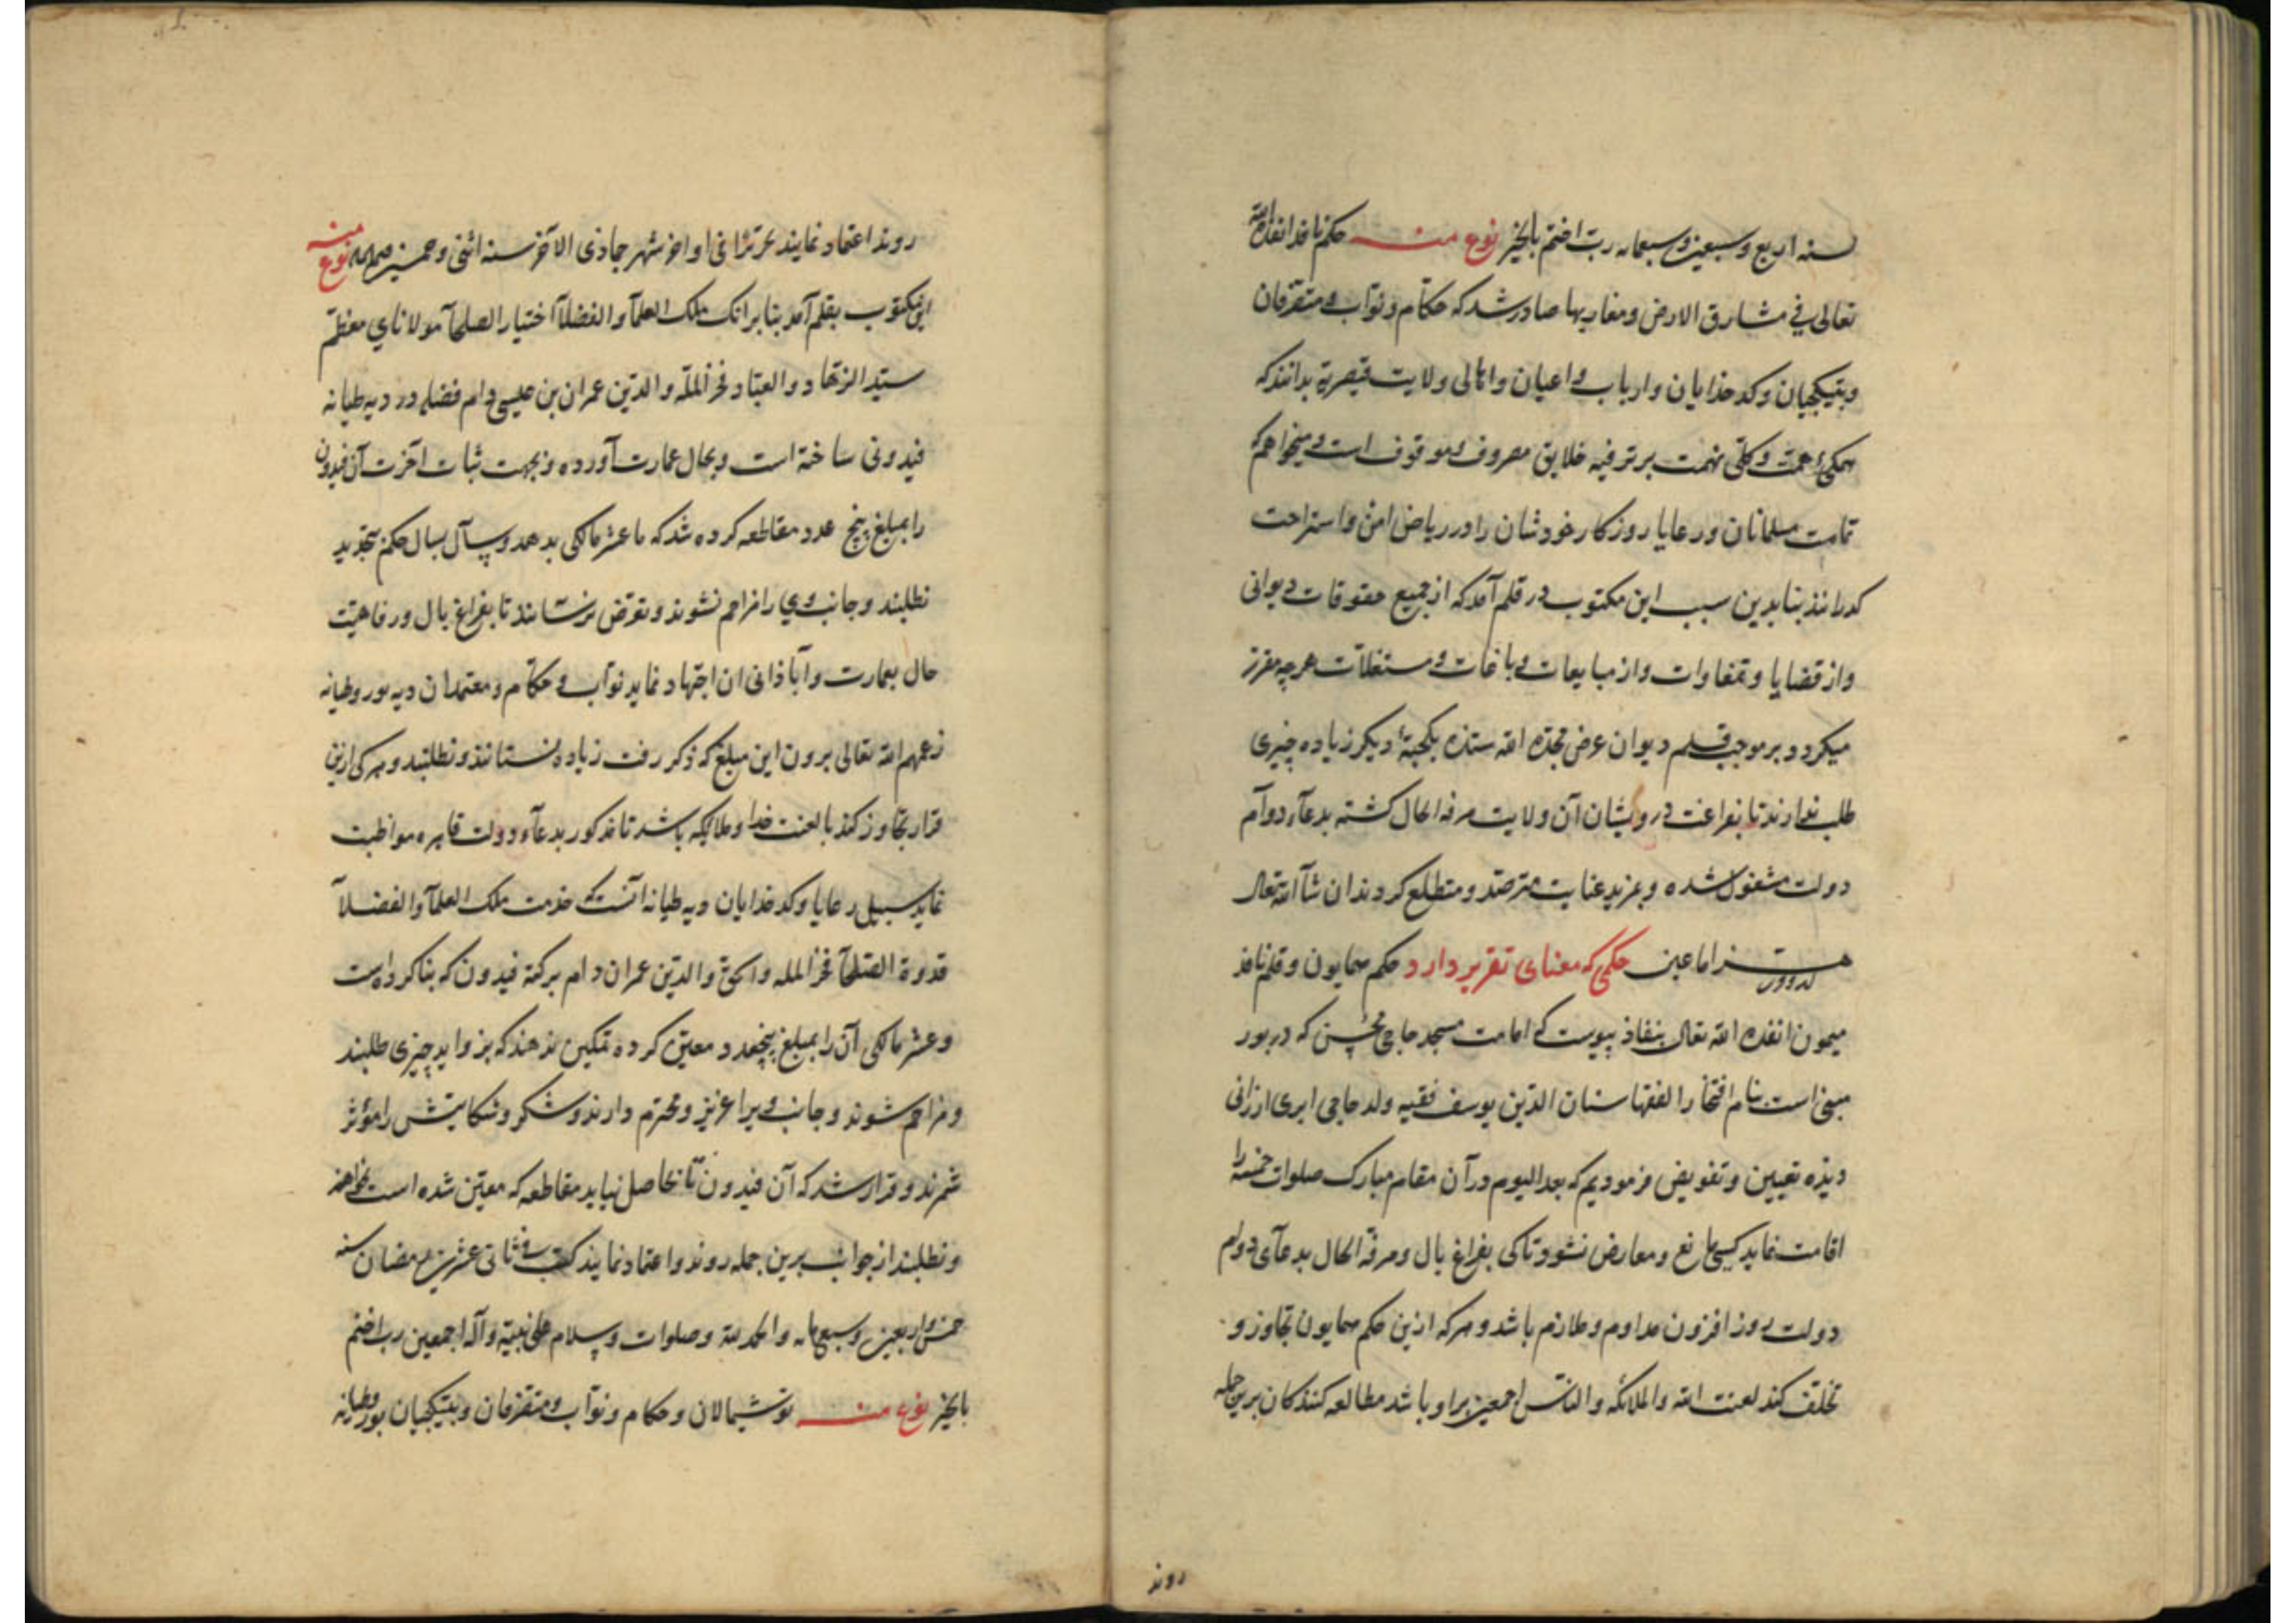 سنه اربع و سبعین و سبعمایه رب اختم بالخیر نوع منه حکم نافذ انفذه الله
تعالی فی مشارق الارض و مغاربها صادر شد که حکام و نواب و متصرفان
و بتیکچیان و کدخدایان و ارباب و اعیان و اهالی ولایت قیصریه بدانند که
همکی همت و کلی نهمت بر ترفیه خلایق مصروف و موقوف است و میخواهم که
تمامت مسلمانان و رعایا روزکار خودشان را در ریاض امن و استراحت
کدرانند بنابدین سبب این مکتوب در قلم آمد که از جمیع حقوقات دیوانی
و از قضایا و تفاوات و از مبایعات و باغات و مستغلات هرچه مقرر
میکردد بر موجب قلم دیوان عرض مجده الله ستده یکحبهٔ دیکر زیاده چیزی
طلب ندارند تا بفراغت درویشان آن ولایت مرفه الحال کشته بدعآء دوآم
دولت مشغول شده و بمزید عنایت مترصد و متطلع کردند ان شآ الله تعالی
حکمی که معنای تقریر دارد حکم همایون و قلم نافذ
میمون انفذه الله تعالی بنفاذ پیوست که امامت مسجد حاجی محسن که در بور
مبنی است بنام افتخار الفقها سنان الدین یوسف فقیه ولد حاجی ابری ارزانی
دیده تعیین و تفویض فرمودیم که بعد الیوم در آن مقام مبارک صلوات خمسه را
اقامت نماید کسی مانع و معارض نشود تاکی بفراغ بال و مرفه الحال بدعآی دوام
دولت روز افزون مداوم و ملازم باشد و هرکه ازین حکم همایون تجاوز و
تخلف کند لعنت الله و الملائکه و الناس اجمعین برا و باشد مطالعه کنندکان برین جمله
روند
روند اعتماد نمایند تحریرا فی اواخر شهر جماذی الاخر سنه اثنی و خمسین نوع منه
این مکتوب بقلم آمد بنابر انک ملک العلمآ و الفضلآ اختیار الصلحآ مولانای معظم
سید الزهاد و العباد فخر المله و الدین عمران بن عیسی دام فضله در دیه طیانه
فیدونی ساخته است و بحال عمارت آورده و بجهت ثبات اخرت آن فیدون
را بمبلغ پنج عدد مقاطعه کرده شد که ما عشر مالکی بدهد و سال بسال حکم تجدید
نطلبند و جانب وی را مزاحم نشوند و تعرض نرسانند تا بفراغ بال و رفاهیت
حال بعمارت و آباذانی ان اجتهاد نماید نواب و حکام و معتمدان دیه بور و طیانه
زعهم الله تعالی برون این مبلغ که ذکر رفت زیاده نستانند و نطلبند و هرکی ازین
قرار تجاوز کند با لعنت خدا و ملایکه باشد تا مذکور بدعآء دولت قاهره مواظبت
نماید سبیل رعایا و کدخدایان دیه طیانه انست که خدمت ملک العلمآ و الفضلآ
قدوة الصلحآ فخر المله و الحق و الدین عمران دام برکته فیدون که بنا کرده است
و عشر مالکی آن را بمبلغ پنجعدد معین کرده تمکین ندهند که بزواید چیزی طلبند
و مزاحم شوند و جانب ویرا عزیز و محترم دارند و شکر و شکایتش را مؤثر
شمرند و قرار شد که آن فیدون تا بحاصل نیاید مقاطعه که معین شده است نخواهند
و نطلبند از جوانب برین جمله روند و اعتماد نمایند کتب فی ثانی عشرین رمضان سنه
خمس و اربعین و سبعمایه و الحمد لله و صلوات و سلام علی نبیه و آله اجمعین رب اختم
بالخیر نوع منه توشیمالان و حکام و نواب و متصرفان و بتیکچیان بور و طیانه